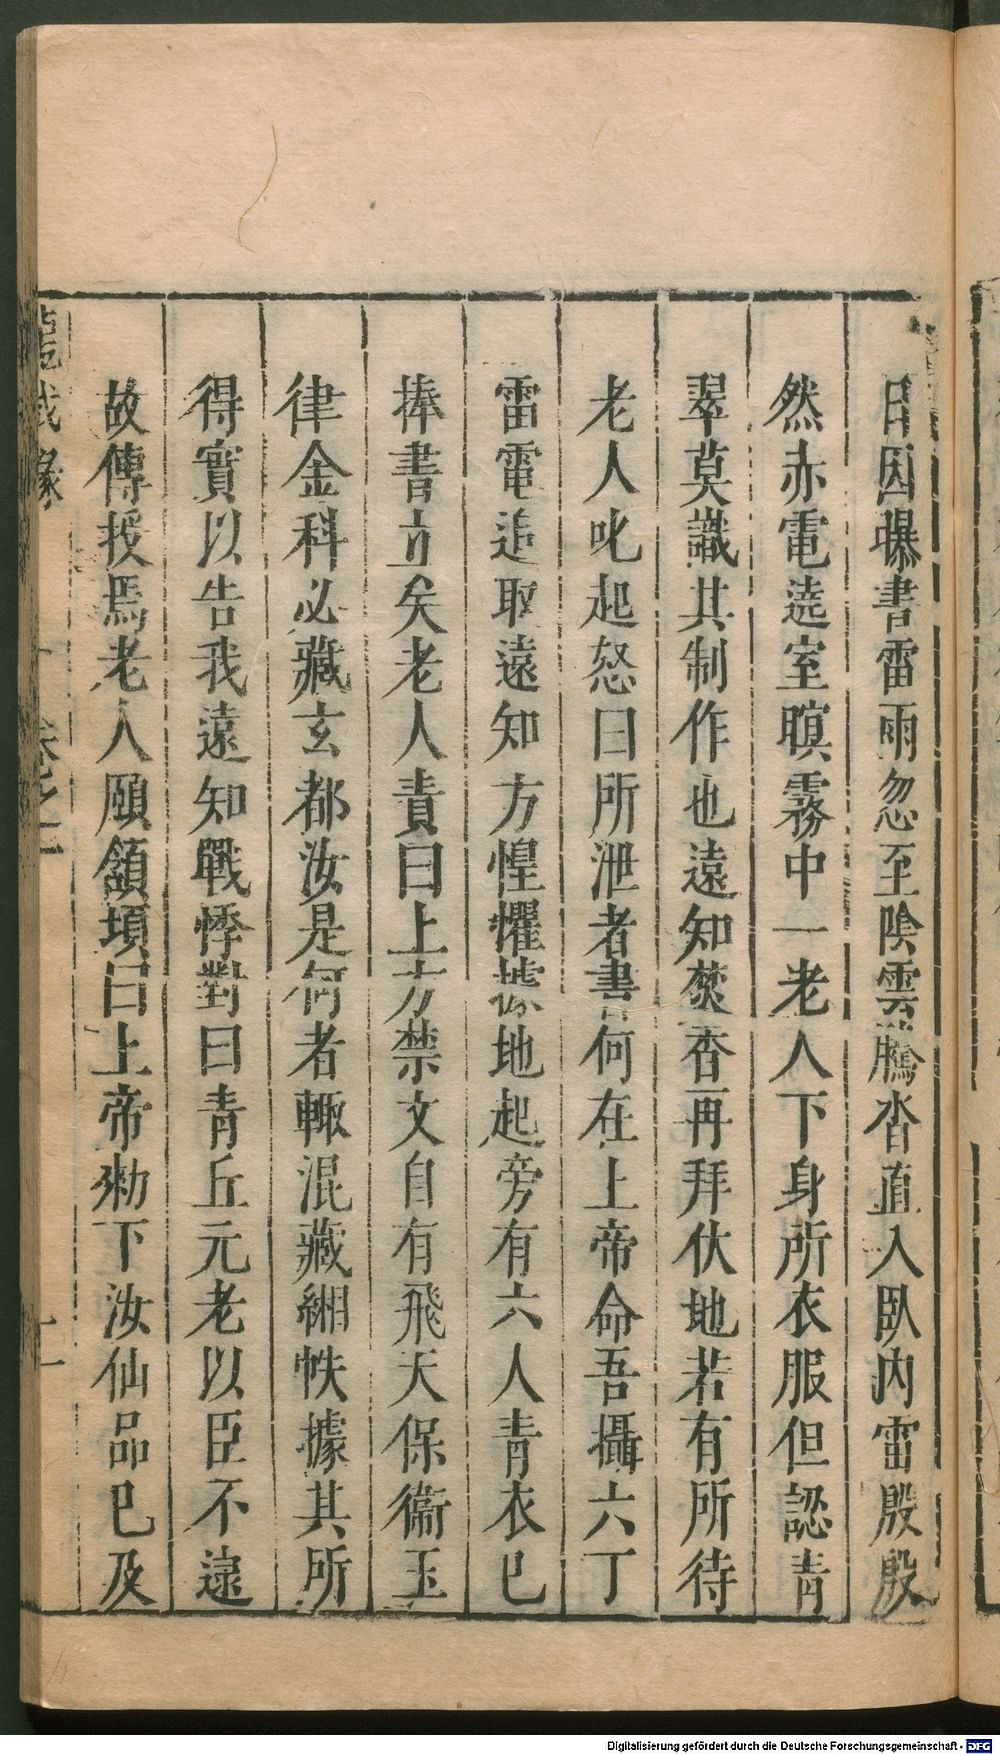 日因曝書雷雨忽至陰雲騰沓直入臥內雷殷殷
然赤電遶室暝霧中一老人下身所衣服但認青
翠莫識其制作也遠知焚香再拜伏地若有所待
老人叱起怒曰所泄者書何在上帝命吾攝六丁
雷電追取遠知方惶懼據地起旁有六人青衣已
捧書立矣老人責曰上方禁文自有飛天保衞玉
律金科必藏玄都汝是何者輙混藏緗帙據其所
得實以告我遠知戰悸對曰青丘元老以臣不逮
故傳授焉老人頤頷頃曰上帝勑下汝仙品已及
卷之一
Digitalisierung gefördert durch die Deutsche Forschungsgemeinschaft - DFG